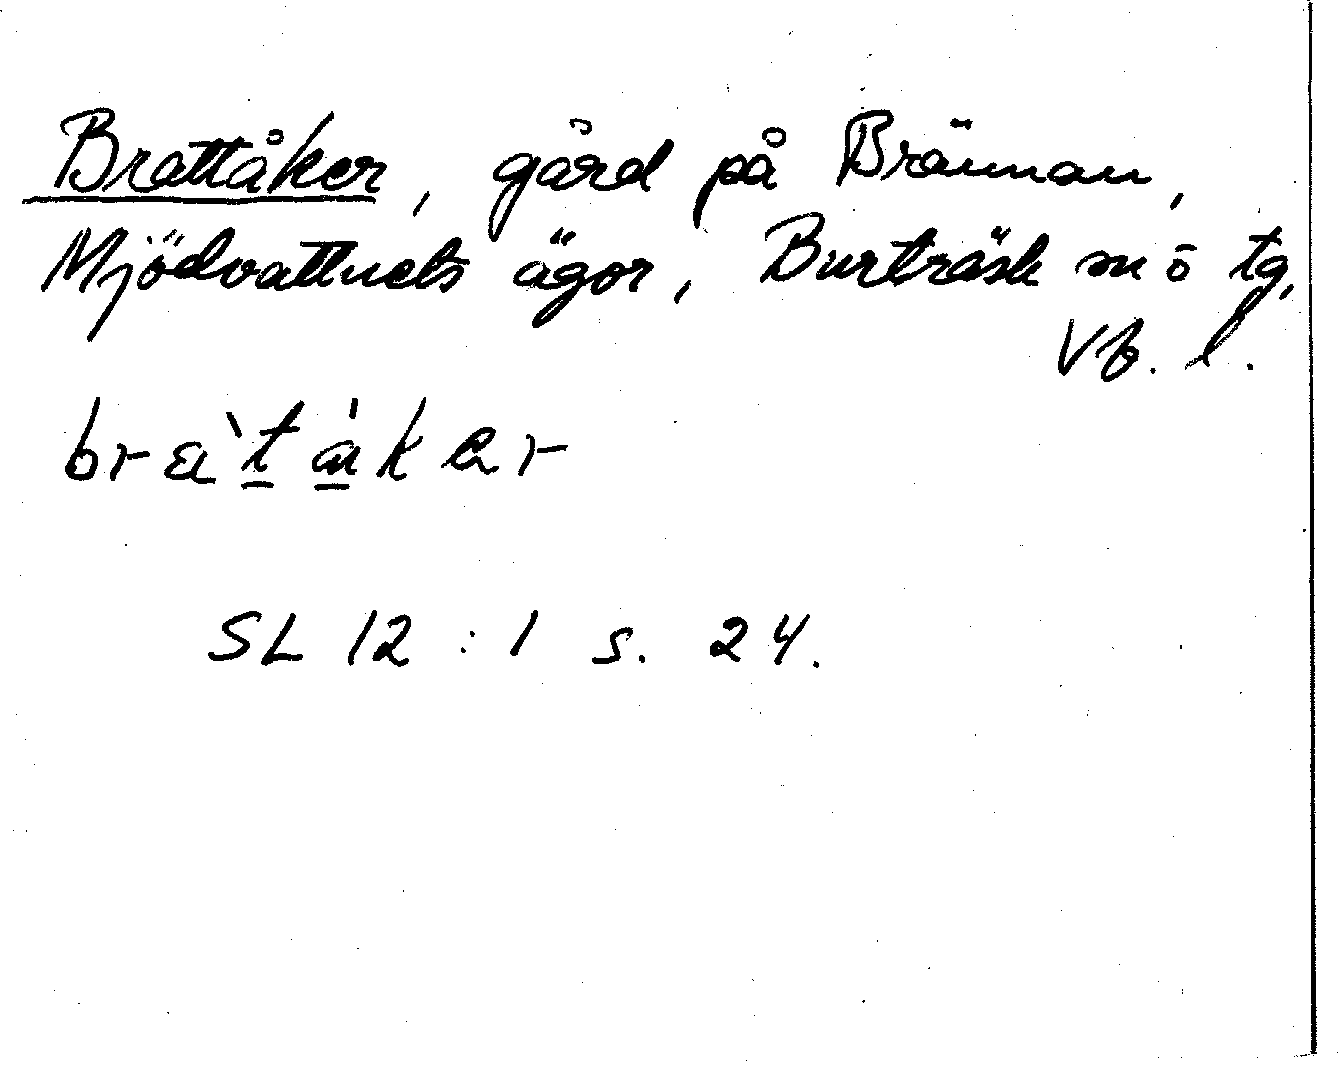 Brattåker, gård på Brännan,
Mjödvattnets ägor, Burträsk sn ö tg,
Vb. l.
bra`t a'k er
SL 12 : 1 s. 24.